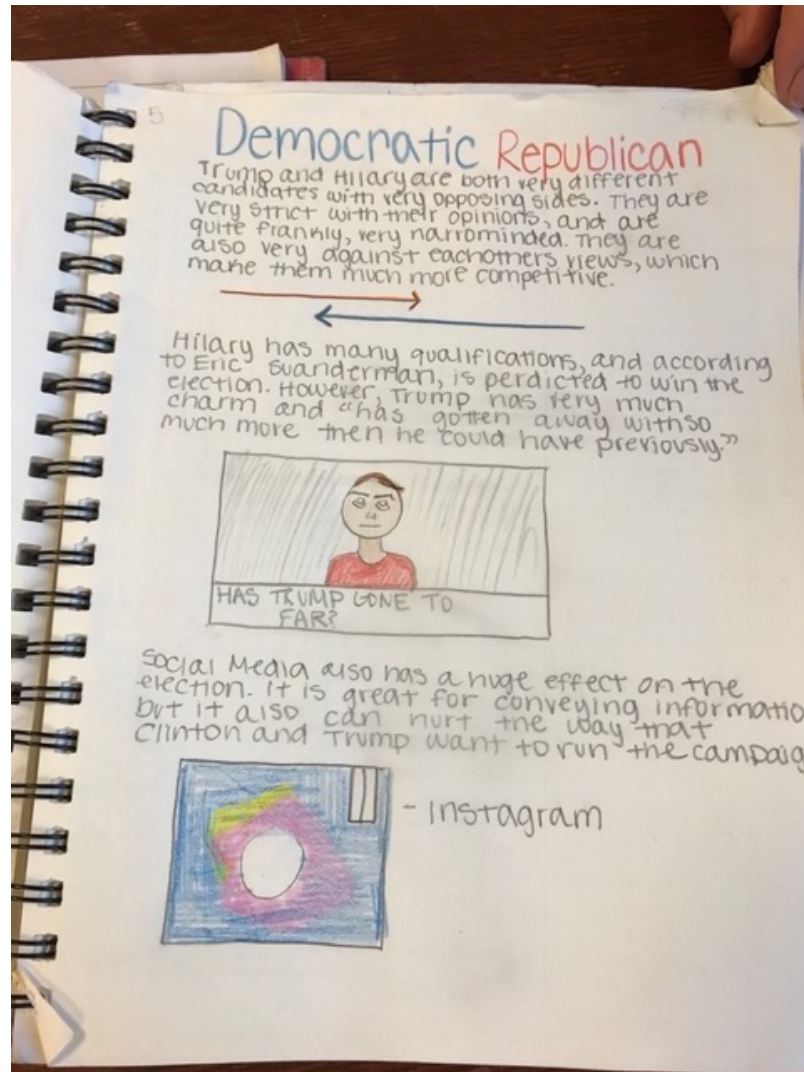 5
Democratic Republican
Trump and Hilary are both very different
candidates with very opposing sides. They are
very strict with their opinions, and are
quite frankly, very narrominded. They are
also very against eachothers views, which
make them much more competitive.
Hilary has many qualifications, and according
to Eric Suanderman, is perdicted to win the
election. However, Trump has very much
charm and "has gotten away with so
much more then he could have previously."
HAS TRUMP GONE TO
FAR?
Social Media also has a huge effect on the
election. It is great for conveying informatio
but it also can hurt the way that
Clinton and Trump want to run the campaig
- Instagram